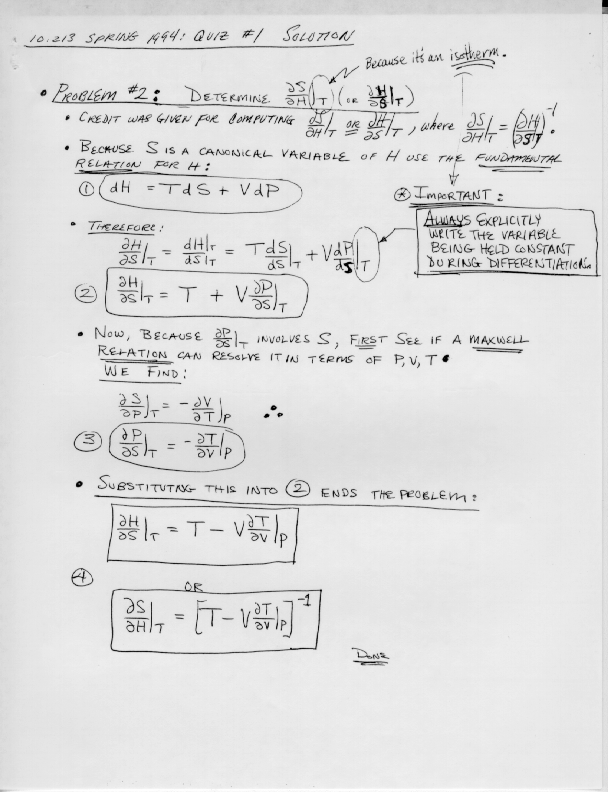 10.213 SPRING 1994: QUIZ #1 SOLUTION
Because it's an isotherm.
• PROBLEM #2: DETERMINE ∂S/∂H|T (OR ∂H/∂S|T)
• CREDIT WAS GIVEN FOR COMPUTING ∂S/∂H|T OR ∂H/∂S|T, where ∂S/∂H|T = (∂H/∂S|T)⁻¹.
• BECAUSE S IS A CANONICAL VARIABLE OF H USE THE FUNDAMENTAL
RELATION FOR H:
① dH = TdS + VdP
⊛ IMPORTANT:
ALWAYS EXPLICITLY
WRITE THE VARIABLE
BEING HELD CONSTANT
DURING DIFFERENTIATION.
• THEREFORE:
∂H/∂S|T = dH|T/dS|T = TdS/dS|T + VdP/dS|T
② ∂H/∂S|T = T + V∂P/∂S|T
• NOW, BECAUSE ∂P/∂S|T INVOLVES S, FIRST SEE IF A MAXWELL
RELATION CAN RESOLVE IT IN TERMS OF P, V, T.
WE FIND:
∂S/∂P|T = -∂V/∂T|P ∴
③ ∂P/∂S|T = -∂T/∂V|P
• SUBSTITUTNG THIS INTO ② ENDS THE PROBLEM:
∂H/∂S|T = T - V∂T/∂V|P
④
OR
∂S/∂H|T = [T - V∂T/∂V|P]⁻¹
DONE